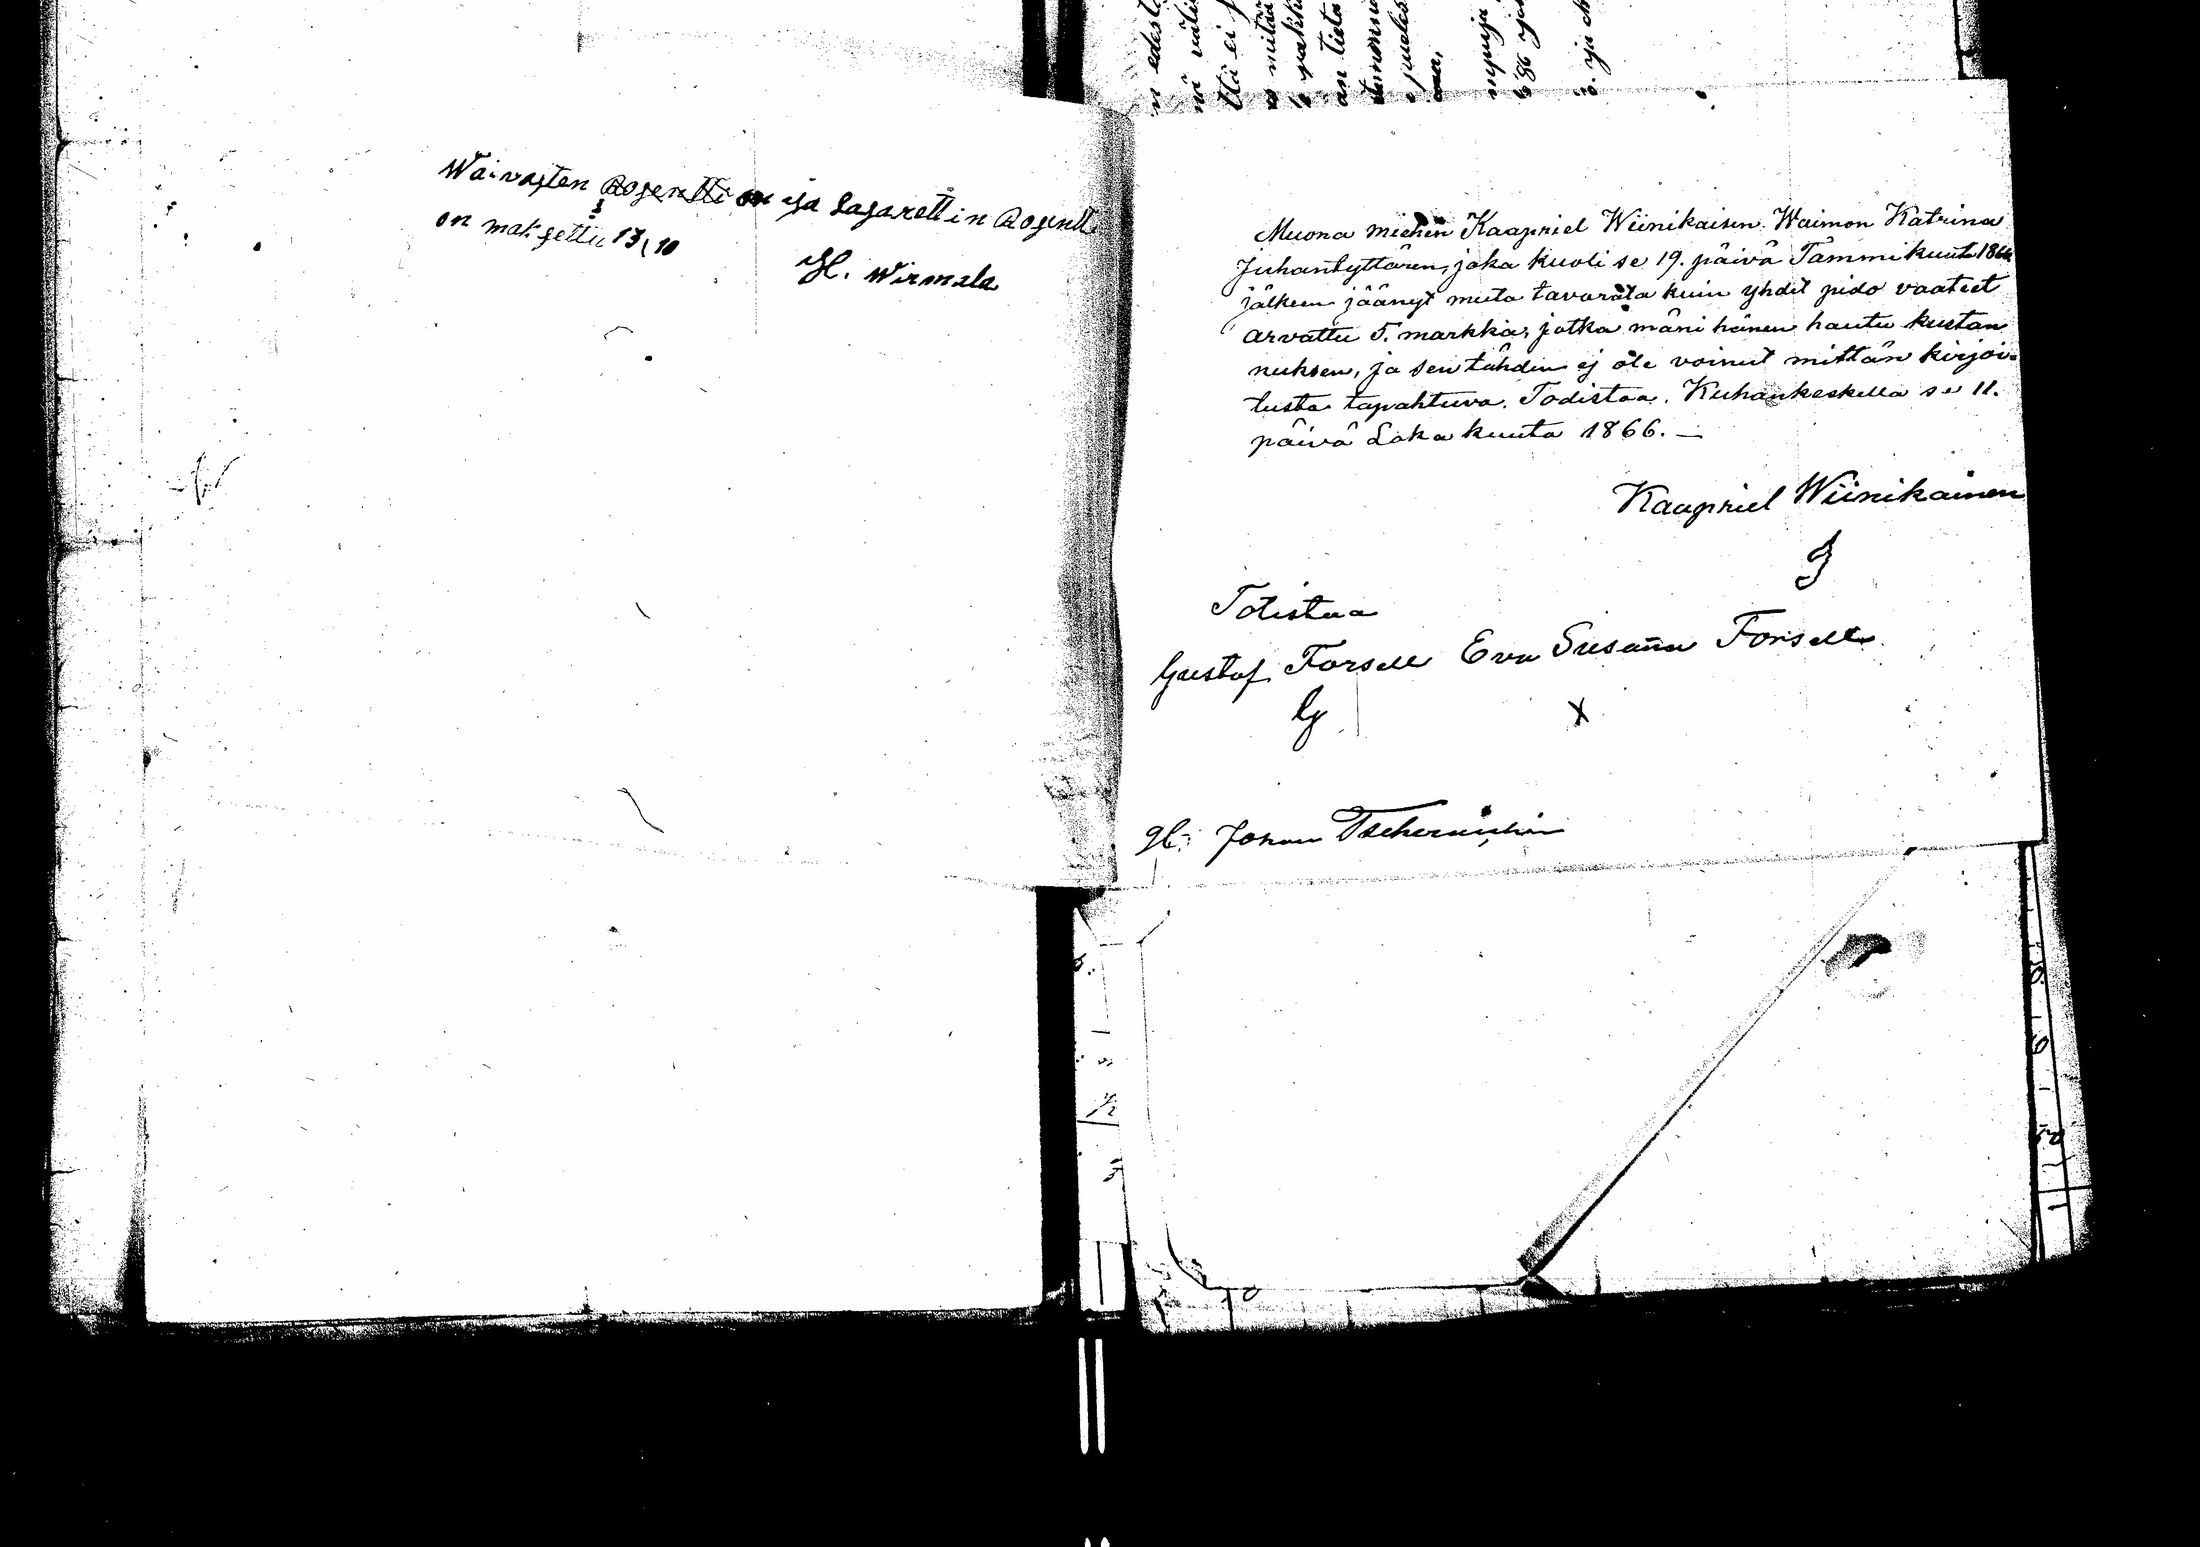 Waivasten Rosentti on ja Lasarettin Rosentti
on maksettu 13/10
H. Wirmala
n edestä
nä väliä
ttä ei
an tietä
Muona miehen Kaapriel Wiinikaisen Waimon Katrina
Juhantyttären, joka kuoli se 19. päivä Tammikuut 1866
jälkeen jäänyt muta tavarata kuin yhdet pido vaateet
arvattu 5. markka, jotka mäni hänen hautu kustan
nuksen, ja sen tähden ej ole voinut mittän kirjoi-
tusta tapahtuva. Todistaa. Kuhankeskella se 11.
päivä Loka kuuta 1866. —
Kaapriel Wiinikainen
Totistaa
Gustaf Forsell Eva Susanna Forsell
G X
H: Johan